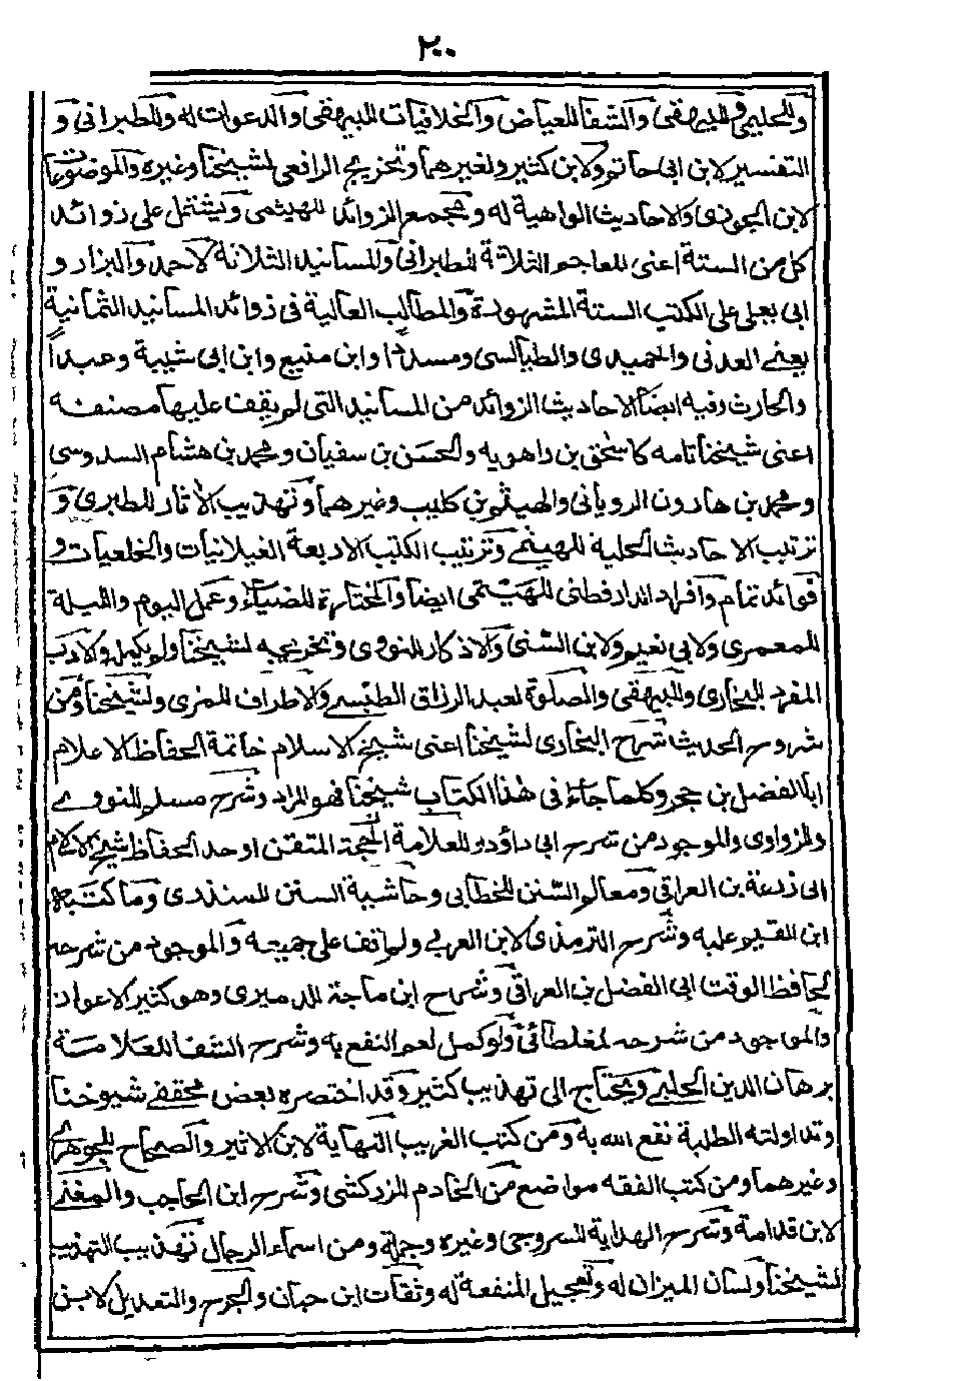 ٢٠٠
وللحليمي وللبيهقي والشفا للعياض والخلافيات للبيهقي والدعوات له وللطبراني و
التفسير لابن ابي حاتم ولابن كثير ولغيرهما وتخريج الرافعي لشيخنا وغيره والموضوعات
لابن الجوزي والاحاديث الواهية له ومجمع الزوائد للهيثمي ويشتمل على زوائد
كل من الستة اعني المعاجم الثلاثة للطبراني والمسانيد الثلاثة لاحمد والبزار و
ابي يعلى على الكتب الستة المشهورة والمطالب العالية في زوائد المسانيد الثمانية
يعني العدني والحميدي والطيالسي ومسددا وابن منيع وابن ابي شيبة وعبدا
والحارث وفيه ايضا الاحاديث الزوائد من المسانيد التي لم يقف عليها مصنفه
اعني شيخنا تامه كاسحق بن راهويه والحسن بن سفيان ومحمد بن هشام السدوسي
ومحمد بن هارون الروياني والهيثم بن كليب وغيرهما وتهذيب الاثار للطبري و
ترتيب الاحاديث الحلية للهيثمي وترتيب الكتب الاربعة الغيلانيات والخلعيات و
فوائد تمام وافراد الدارقطني للهيثمي ايضا والمختارة للضياء وعمل اليوم والليلة
للمعمري ولابي نعيم ولابن السني والاذكار للنووي وتخريجه لشيخنا ولم يكمل والادب
المفرد للبخاري وللبيهقي والصلوة لعبد الرزاق الطبسي والاطراف للمزي ولشيخنا ومن
شروح الحديث شرح البخاري لشيخنا اعني شيخ الاسلام خاتمة الحفاظ الاعلام
ابا الفضل بن حجر وكلما جاء في هذا الكتاب شيخنا فهو المراد وشرح مسلم للنووي
وللزواوي والموجود من شرح ابي داؤد للعلامة الحجة المتقن اوحد الحفاظ شيخ الاسلام
ابي زرعة بن العراقي ومعالم السنن للخطابي وحاشية السنن للمنذري وما كتبه
ابن القيم عليه وشرح الترمذي لابن العربي ولم اقف على جميعه والموجود من شرحه
لحافظ الوقت ابي الفضل بن العراقي وشرح ابن ماجة للدميري وهو كثير الاعواز
والموجود من شرحه لمغلطائي ولو كمل لعم النفع به وشرح الشفا للعلامة
برهان الدين الحلبي ويحتاج الى تهذيب كثير وقد اختصره بعض محققي شيوخنا
وتداولته الطلبة نفع الله به ومن كتب الغريب النهاية لابن الاثير والصحاح للجوهري
وغيرهما ومن كتب الفقه مواضع من الخادم للزركشي وشرح ابن الحاجب والمغني
لابن قدامة وشرح الهداية للسروجي وغيره وجملة ومن اسماء الرجال تهذيب التهذيب
لشيخنا ولسان الميزان له وتعجيل المنفعة له وثقات ابن حبان والجرح والتعديل لابن